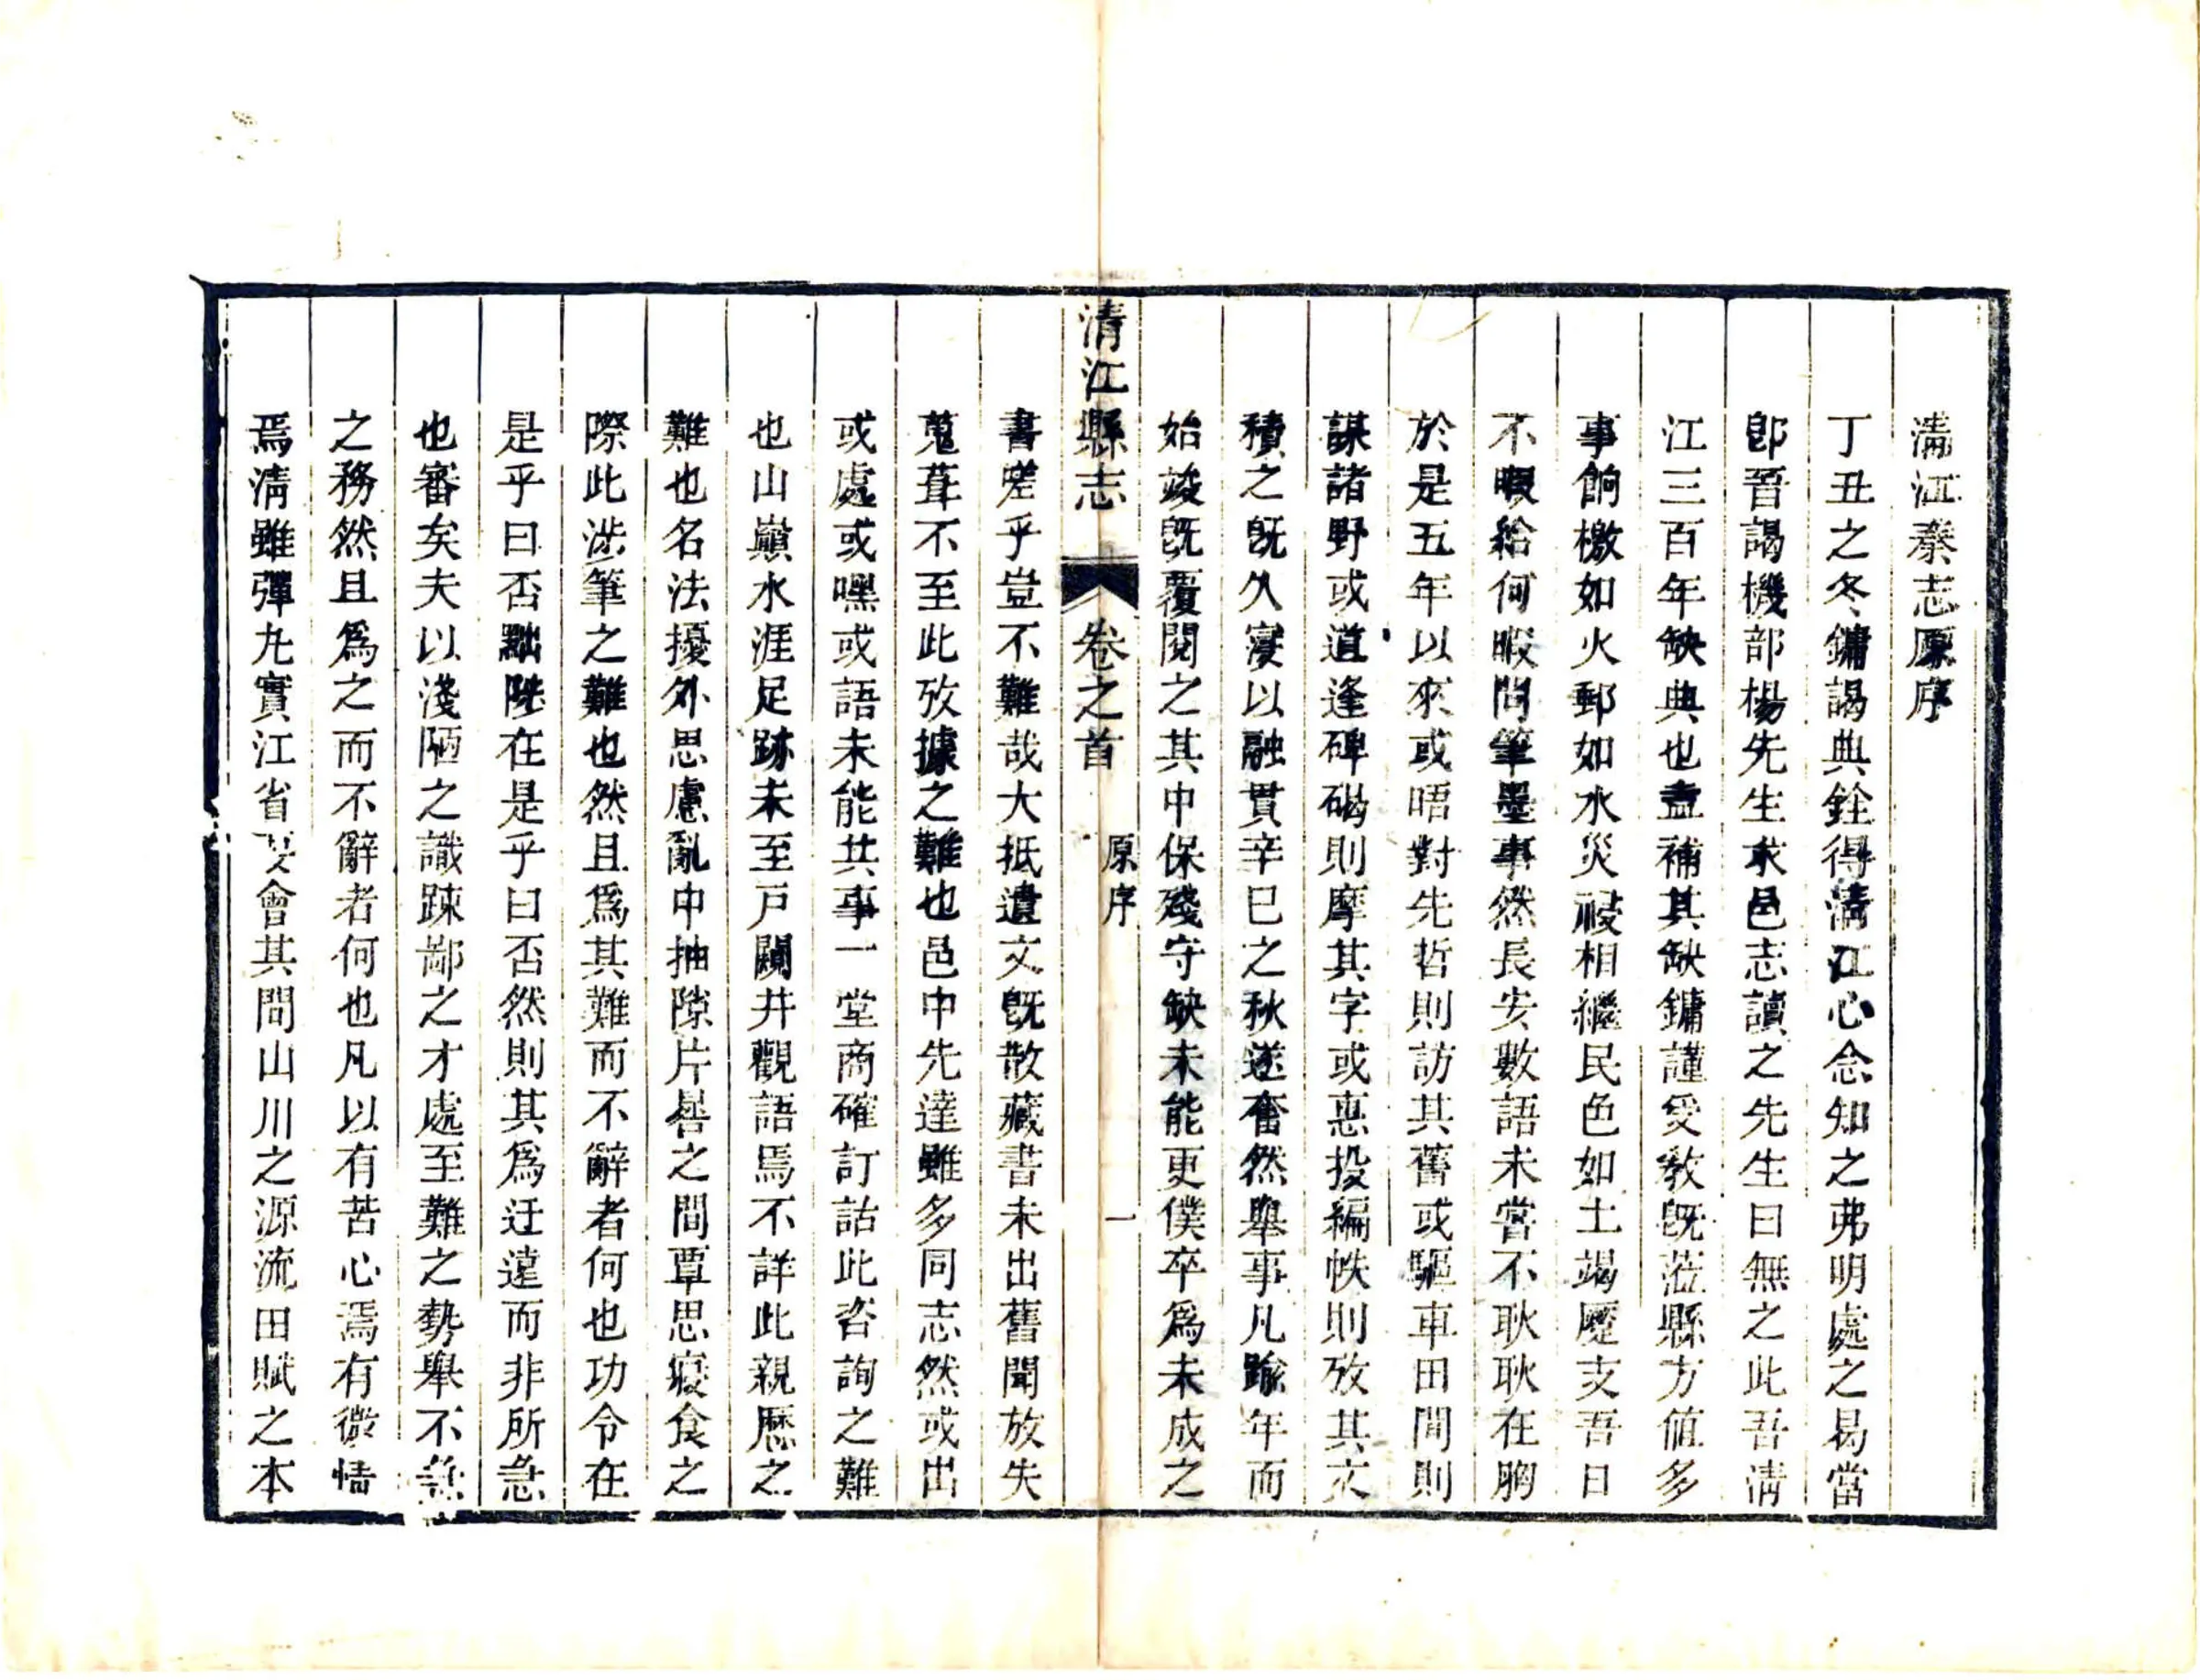 清江秦志原序
丁丑之冬鏞謁典銓得清江心念知之弗明處之易當
卽晉謁機部楊先生求邑志讀之先生曰無之此吾清
江三百年缺典也盍補其缺鏞謹受敎旣蒞縣方値多
事餉檄如火郵如水災祲相繼民色如土竭蹷支吾日
不暇給何暇問筆墨事然長安數語未嘗不耿耿在胸
於是五年以來或晤對先哲則訪其舊或驅車田間則
謀諸野或道逢碑碣則摩其字或惠投編帙則攷其文
積之旣久寖以融貫辛巳之秋遂奮然舉事凡踰年而
始竣旣覆閱之其中保殘守缺未能更僕卒爲未成之
清江縣志 卷之首 原序 一
書嗟乎豈不難哉大抵遺文旣散藏書未出舊聞放失
蒐葺不至此攷據之難也邑中先達雖多同志然或出
或處或嘿或語未能共事一堂商確訂詁此咨詢之難
也山巔水涯足跡未至戸闥井觀語焉不詳此親歷之
難也名法擾外思慮亂中抽隙片晷之間覃思寢食之
際此涉筆之難也然且爲其難而不辭者何也功令在
是乎曰否黜陟在是乎曰否然則其爲迂遠而非所急
也審矣夫以淺陋之識踈鄙之才處至難之勢舉不急
之務然且爲之而不辭者何也凡以有苦心焉有微情
焉清雖彈丸實江省 會其間山川之源流田賦之本